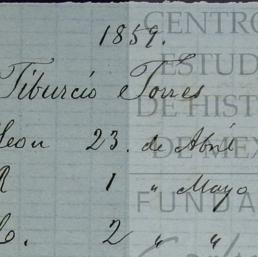 1859.
Tiburcio e Torres
Leon 23. de Abril
1 " Mayo
2 " "
CENTRO
ESTUD
DE HIST
DE MÉX
FUNDA